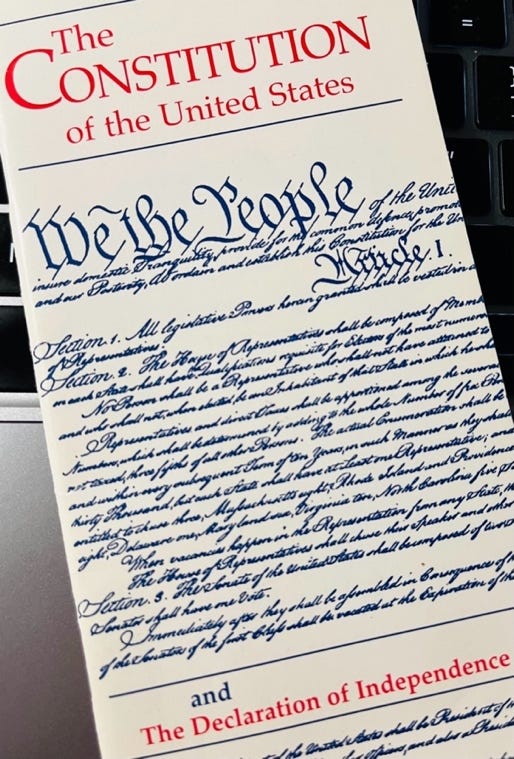 The
CONSTITUTION
of the United States
We the People of the Unit
insure domestic Tranquility, provide for the common defence, promot
and our Posterity, do ordain and establish this Constitution for the Un
Article I.
Section 1. All legislative Powers herein granted shall be vested in a
of Representatives.
Section 2. The House of Representatives shall be composed of Memb
in each State shall have the Qualifications requisite for Electors of the most numerou
No Person shall be a Representative who shall not have attained to
and who shall not, when elected, be an Inhabitant of that State in which he sha
Representatives and direct Taxes shall be apportioned among the several
Numbers, which shall be determined by adding to the whole Number of free Perso
not taxed, three fifths of all other Persons. The actual Enumeration shall be
and within every subsequent Term of ten Years, in such Manner as they sha
thirty Thousand, but each State shall have at Least one Representative; and
entitled to chuse three, Massachusetts eight, Rhode Island and Providence
eight, Delaware one, Maryland six, Virginia ten, North Carolina five, S
When vacancies happen in the Representation from any State, th
The House of Representatives shall chuse their Speaker and other
Section. 3. The Senate of the United States shall be composed of two S
Senator shall have one Vote.
Immediately after they shall be assembled in Consequence of t
of the Senators of the first Class shall be vacated at the Expiration of the
and
The Declaration of Independence
of the United States shall be President of th